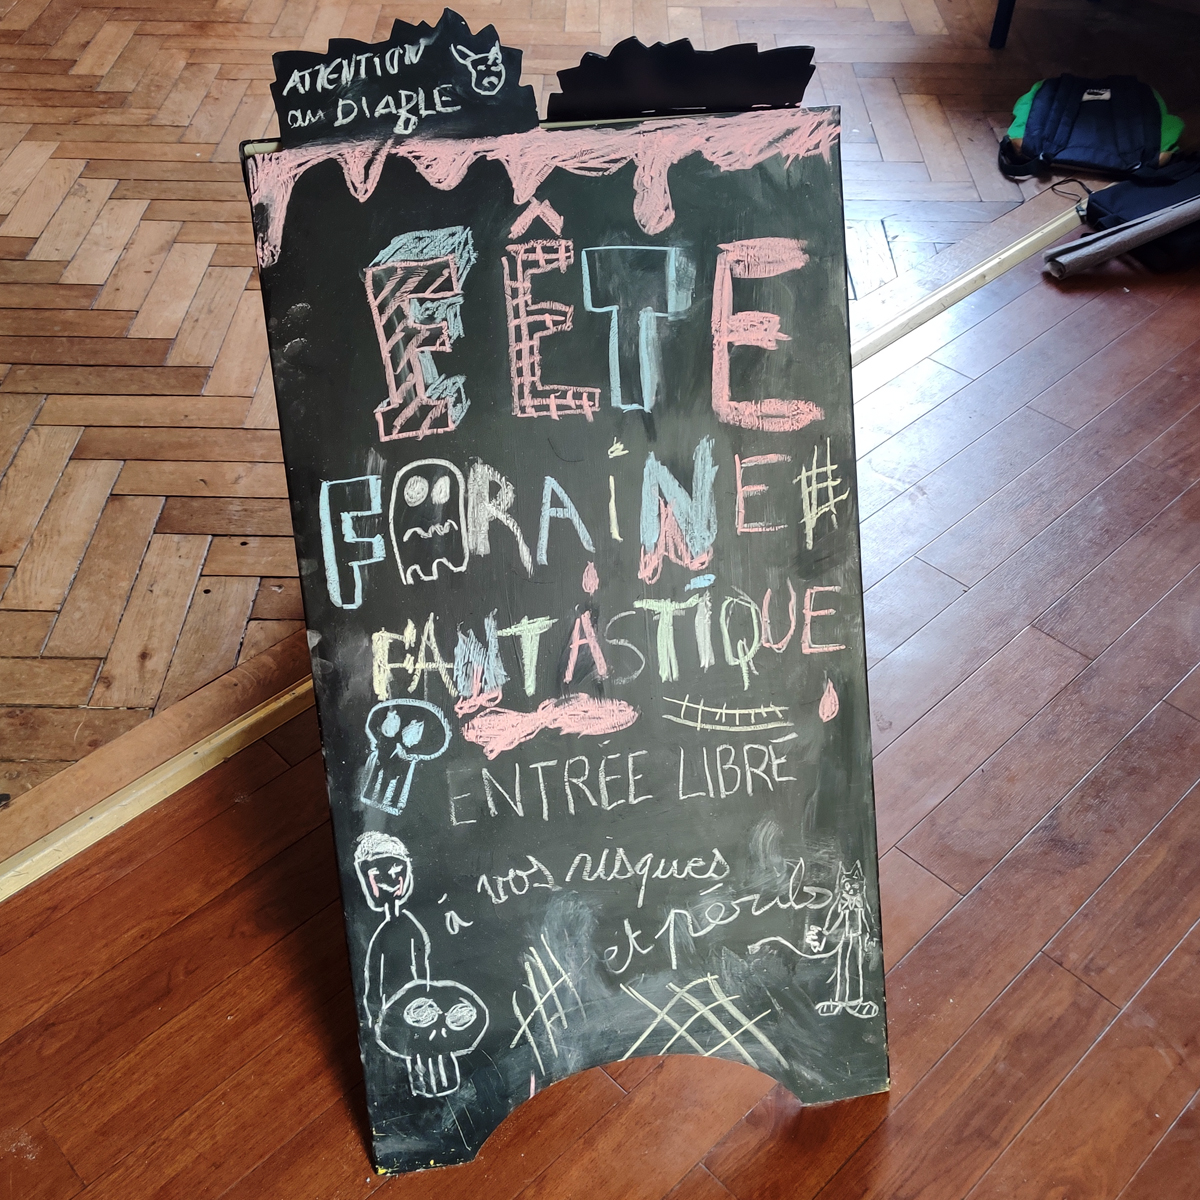 ATTENTION
au DIABLE
FÊTE
FORAINE #
FANTASTIQUE
ENTRÉE LIBRE
à vos risques
et périls